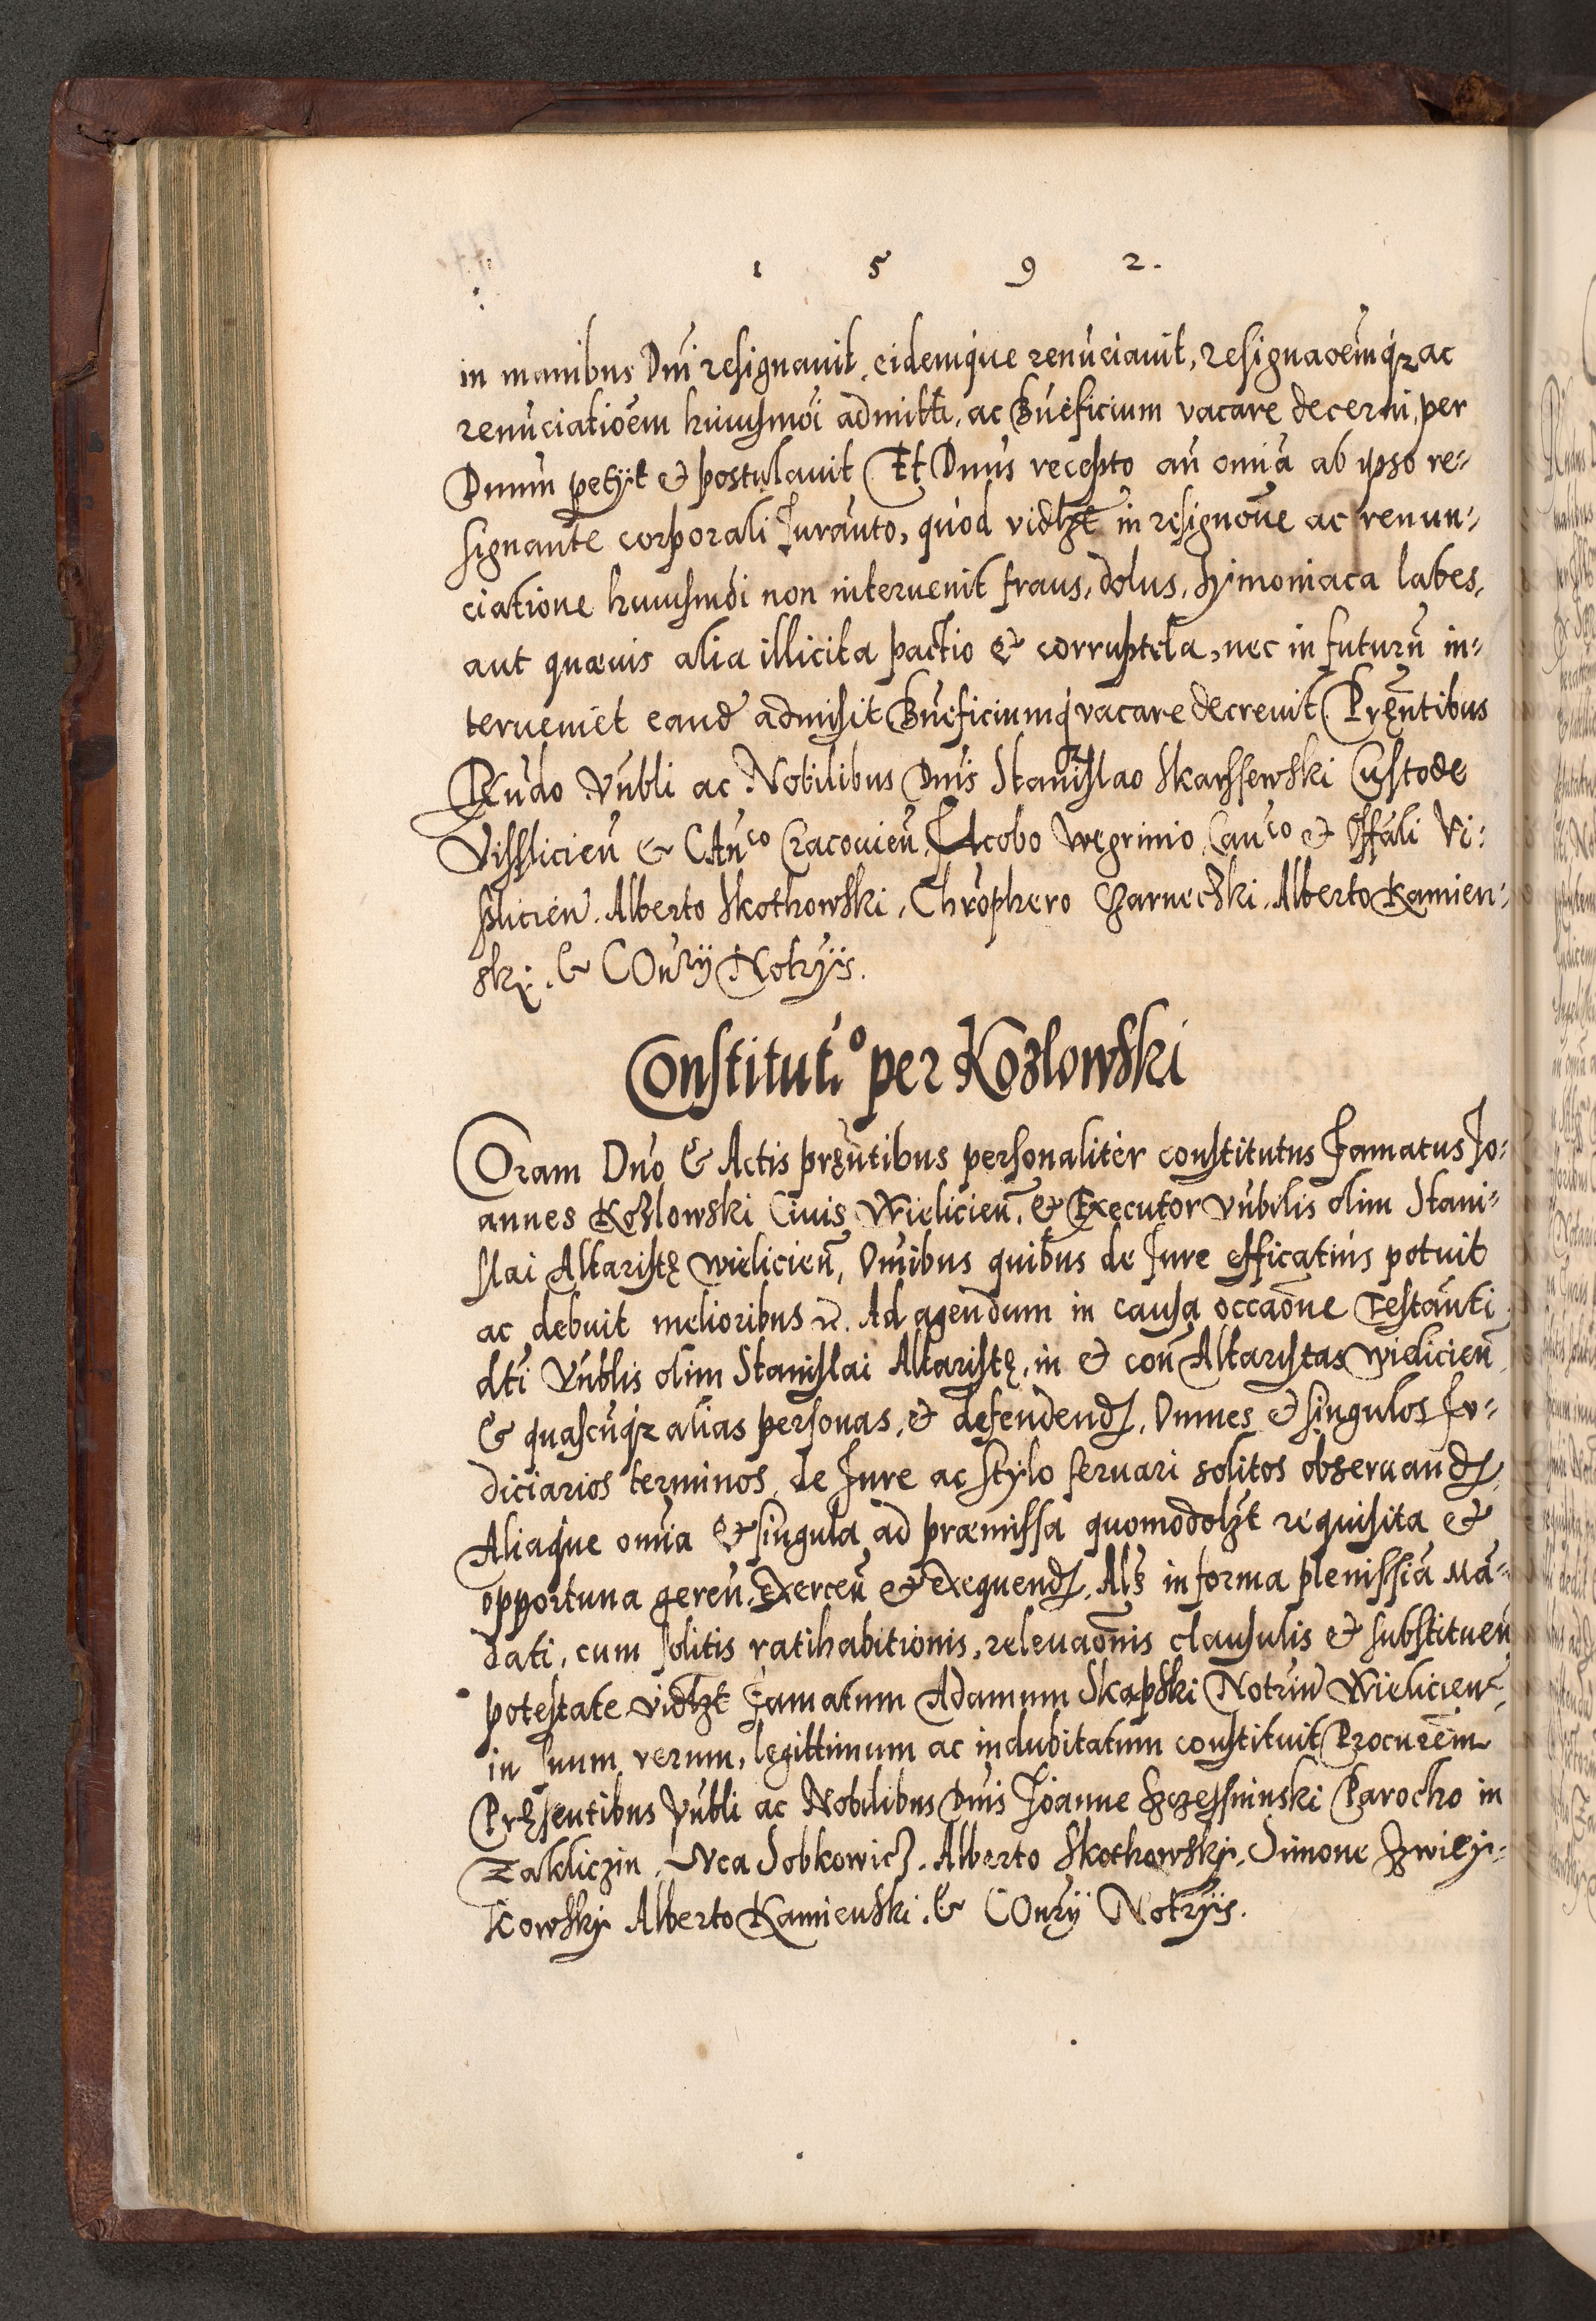 1 5 9 2.
in manibus Dni resignauit, eidemque renunciauit, resignacoemqz ac
renunciatioem huiusmoi admitti, ac Bneficium vacare decerni, per
Dnum petyit & postulauit Et Dnus recepto an omia ab ipso re-
signante corporali Juranto, quod vidzt in resignone ac renun-
ciatione huiusmoi non interuenit fraus, dolus, symoniaca labes,
aut quævis alia illicita pactio & corruptela, nec in futuru in-
terueniet eand admisit Bneficiumqz vacare decreuit. Pręntibus
Rndo Vnbli ac Nobilibus Dnis Stanislao Skarssewski Custode
Vissliciен & CAnco Cracouien, Jacobo Wegrinio Canco & Offali Vi-
slicien. Alberto Skothowski, Chrophero Czarnecski. Alberto Kamien-
ski. & COnrij Notrijs.
Constituto per Kozlowski
COram Dno & Actis pręntibus personaliter constitutus Famatus Jo-
annes Kozlowski Ciuis Wielicien. & Executor Vnbilis olim Stani-
slai Altaristę Wielicien, Omibus quibus de Jure efficatius potuit
ac debuit melioribus Ad agendum in causa occaone Testanti
dti Vnblis olim Stanislai Altaristę, in & con Altaristas Wielicien
& quascuqz alias personas, & defendend, Omnes & singulos Ju-
diciarios terminos, de Jure ac stylo seruari solitos obseruand,
Aliaque omia & singula ad præmissa quomodolzt requisita &
opportuna geren, Exercen & exequend, Als in forma plenissia Ma-
dati, cum solitis ratihabitionis, releuaonis clausulis & substituen
potestate vidzt Famatum Adamum Skapski Notriu Wielicien
in suum verum, legittimum ac indubitatum constituit Procurem
Pręsentibus Vnbli ac Nobilibus Dnis Joanne Szczessninski Parocho in
Zakliczin, Luca Sobkowicz. Alberto Skothowski, Simone Zwiey-
kowski Alberto Kamienski. & COnrij Notrijs.